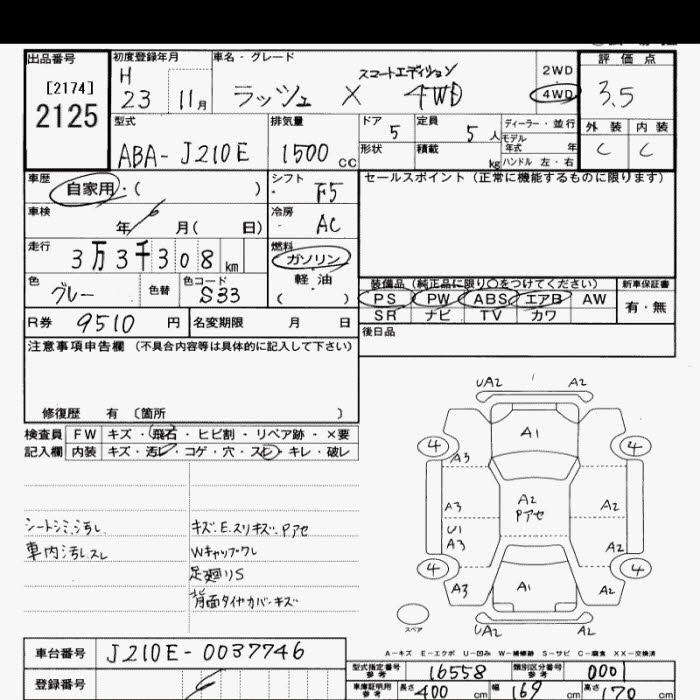 出品番号 初度登録年月 車名・グレード 評価点
[2174] H スコートエディション 2WD
2125 23 11月 ラッシュ X 4WD 4WD 3.5
型式 排気量 ドア 定員 ディーラー・並行 外装 内装
ABA-J210E 1500cc 5 5人 モデル年式 年 C C
形状 積載 kg ハンドル 左・右
車歴 自家用・( ) シフト F5 セールスポイント(正常に機能するものに限ります)
車検 年 月( 日) 冷房 AC
走行 3万3千308km 燃料 ガソリン・軽油
色 グレー 色替 色コード S33 ( )
装備品(純正品に限り○をつけてください) 新車保証書
PS PW ABS エアB AW 有・無
SR ナビ TV カワ
R券 9510円 名変期限 月 日 後日品
注意事項申告欄(不具合内容等は具体的に記入して下さい)
修復歴 有 〔箇所 〕
検査員 FW キズ・飛石・ヒビ割・リペア跡・×要
記入欄 内装 キズ・汚レ・コゲ・穴・スレ・キレ・破レ
シートシミ、汚レ キズ.E.スリキズ.Pアセ
車内汚レスレ Wキャップワレ
足廻りS
背面タイヤカバーキズ
UA2 A2
A1
4 4
A3
A3 A2 Pアセ A2
U1
A3 A2
4 4
A3 A1 A2
スペア UA2 A2
A-キズ E-エクボ U-凹み W-補修跡 S-サビ C-腐食 XX-交換済
車台番号 J210E-0037746
型式指定番号 参考 16558 類別区分番号 参考 000
登録番号
車庫証明用 参考 長さ 400cm 幅 169cm 高さ 170cm